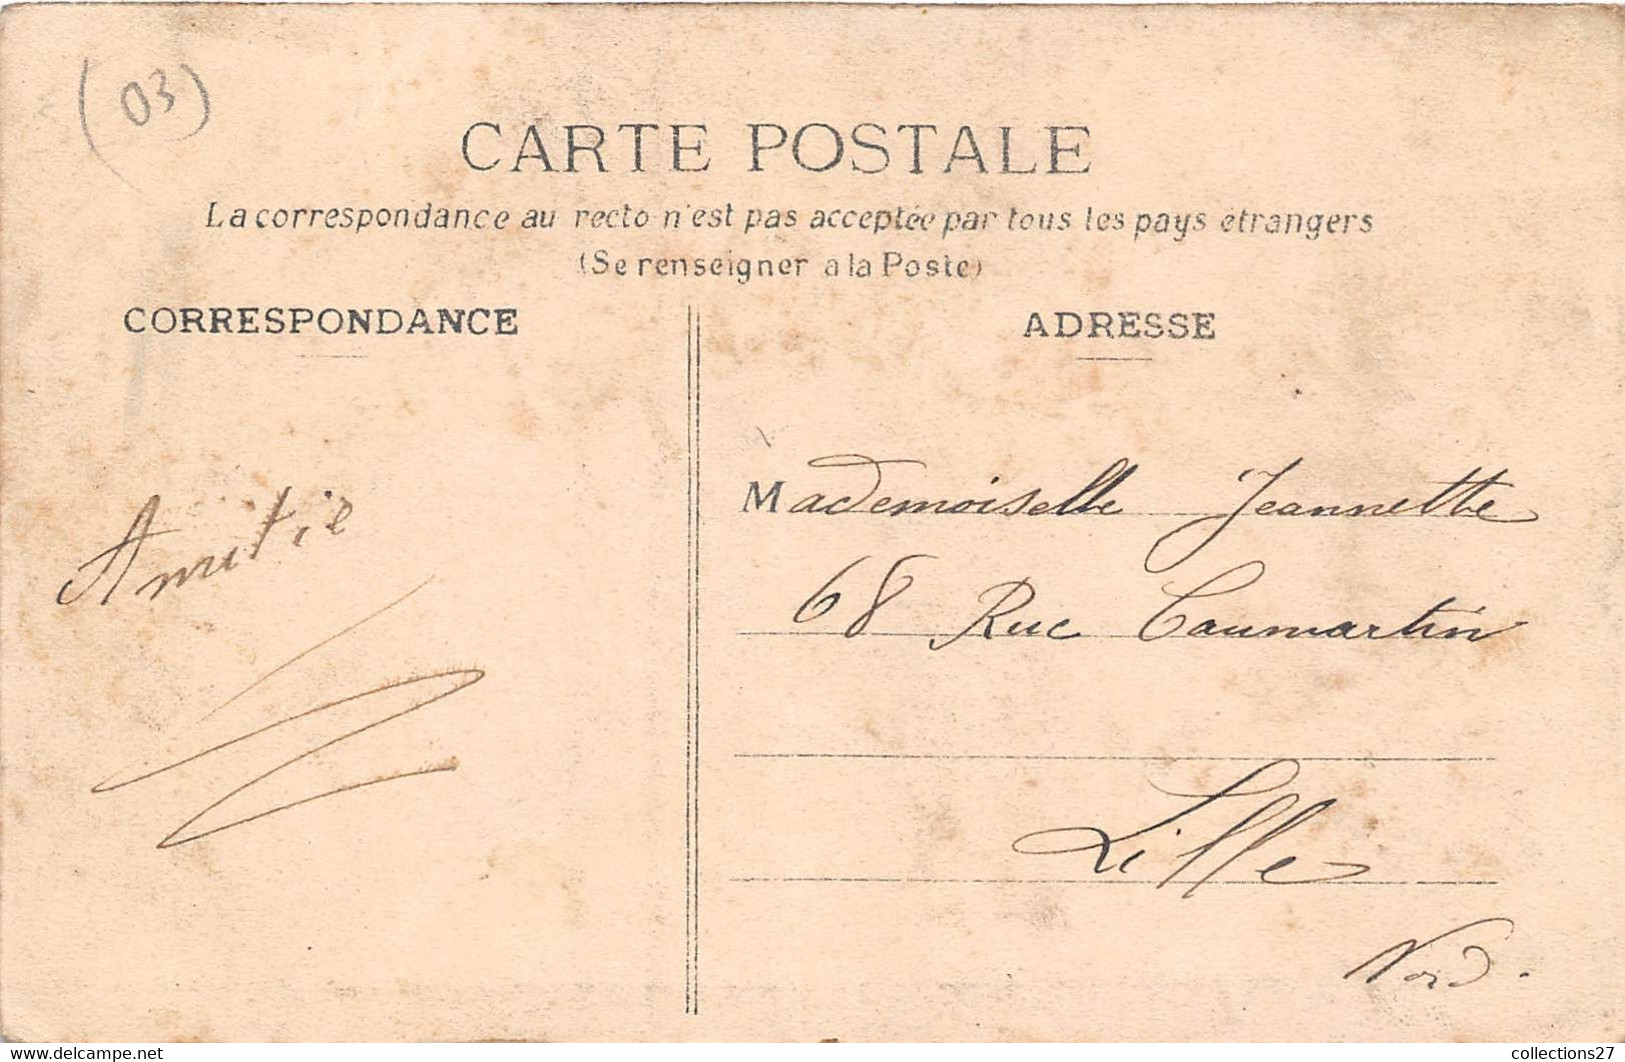 (03)
CARTE POSTALE
La correspondance au recto n'est pas acceptée par tous les pays étrangers
(Se renseigner à la Poste)
CORRESPONDANCE
ADRESSE
Amitie
Mademoiselle Jeannette
68 Rue Caumartin
Lille
Nord.
www.delcampe.net
collections27